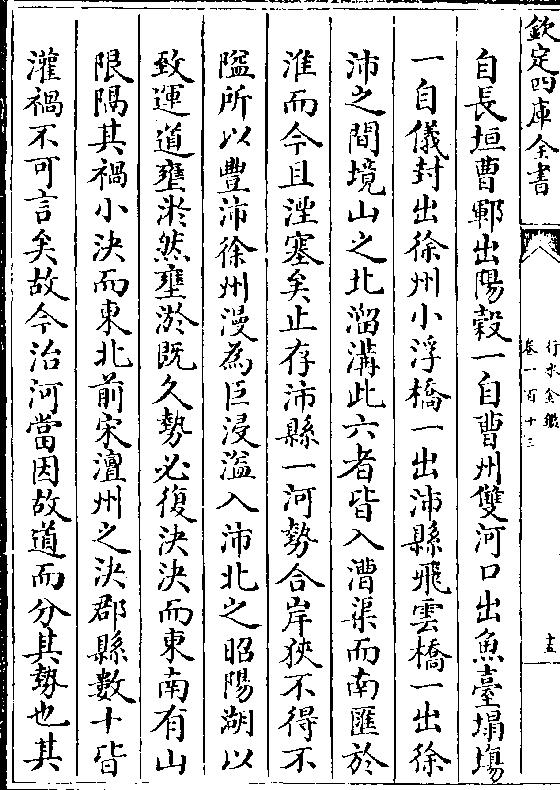 欽定四庫全書
行水金鑑
卷一百十三
十五
自長垣曹鄆出陽穀一自曹州雙河口出魚臺塌塲
一自儀封出徐州小浮橋一出沛縣飛雲橋一出徐
沛之間境山之北溜溝此六者皆入漕渠而南匯於
淮而今且湮塞矣止存沛縣一河勢合岸狹不得不
隘所以豐沛徐州漫為巨浸溢入沛北之昭陽湖以
致運道壅淤然壅淤既久勢必復決決而東南有山
限隔其禍小決而東北前宋澶州之決郡縣數十皆
灌禍不可言矣故今治河當因故道而分其勢也其